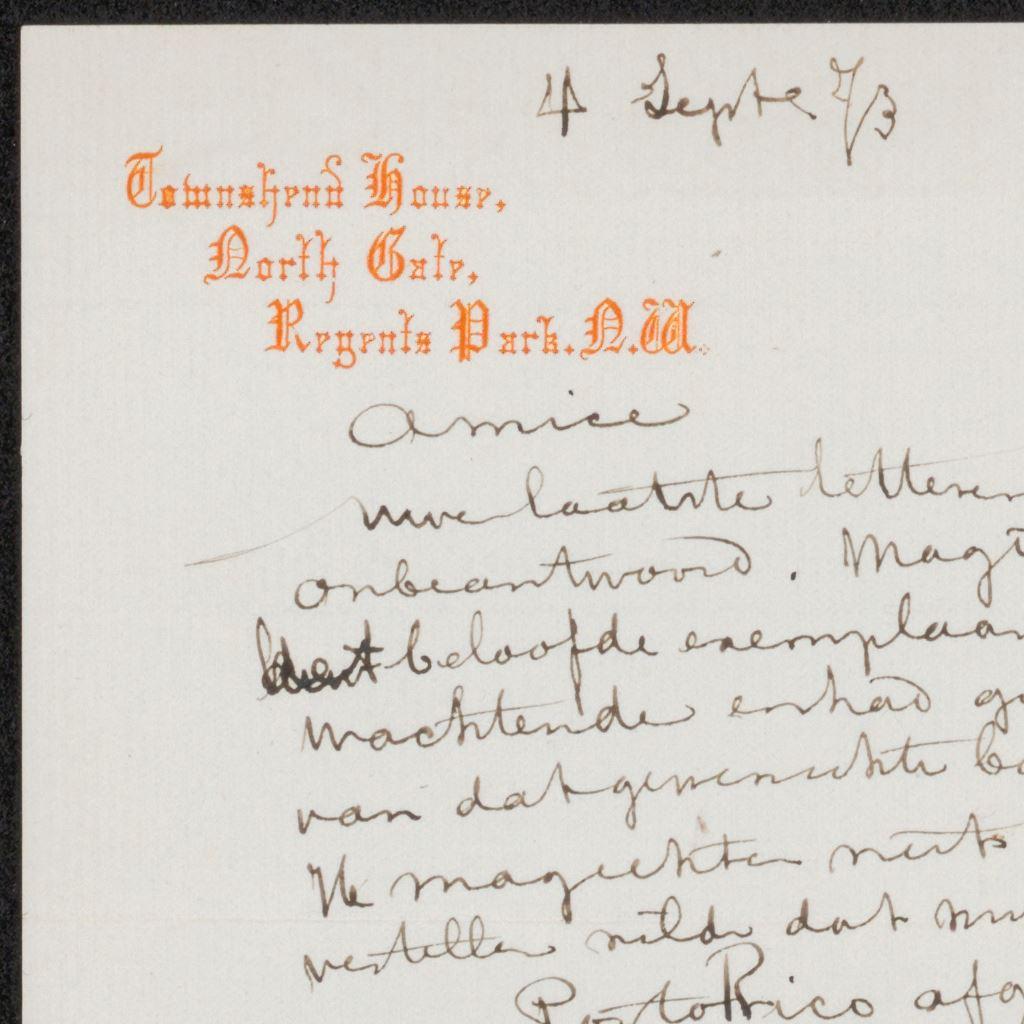 4 Septe 7/3
Townshend House,
North Gate,
Regents Park. N.W.
Amice
uwe laatste letteren
onbeantwoord. Magt
beloofde exemplaar
wachtende en had
van dat gewenschte
Ik mag echter niets
vertellen wilde dat
PortoRico afg